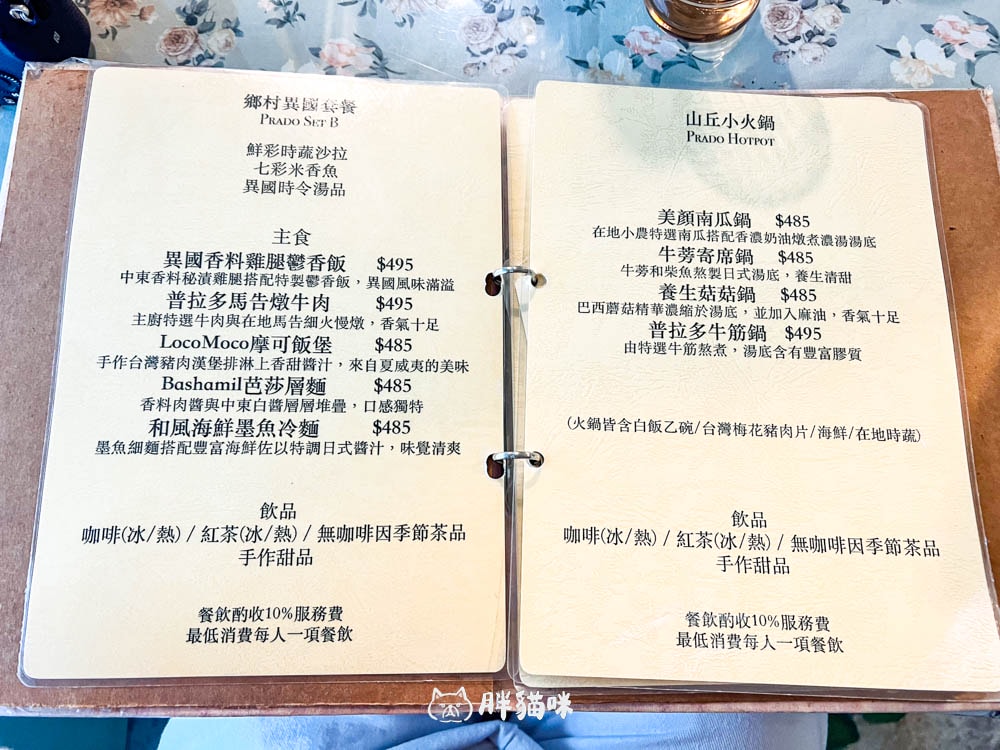 鄉村異國套餐
PRADO SET B
鮮彩時蔬沙拉
七彩米香魚
異國時令湯品
主食
異國香料雞腿鬱香飯 $495
中東香料秘漬雞腿搭配特製鬱香飯，異國風味滿溢
普拉多馬告燉牛肉 $495
主廚特選牛肉與在地馬告細火慢燉，香氣十足
LocoMoco摩可飯堡 $485
手作台灣豬肉漢堡排淋上香甜醬汁，來自夏威夷的美味
Bashamil芭莎層麵 $485
香料肉醬與中東白醬層層堆疊，口感獨特
和風海鮮墨魚冷麵 $485
墨魚細麵搭配豐富海鮮佐以特調日式醬汁，味覺清爽
飲品
咖啡(冰/熱) / 紅茶(冰/熱) / 無咖啡因季節茶品
手作甜品
餐飲酌收10%服務費
最低消費每人一項餐飲
山丘小火鍋
PRADO HOTPOT
美顏南瓜鍋 $485
在地小農特選南瓜搭配香濃奶油燉煮濃湯湯底
牛蒡寄席鍋 $485
牛蒡和柴魚熬製日式湯底，養生清甜
養生菇菇鍋 $485
巴西蘑菇精華濃縮於湯底，並加入麻油，香氣十足
普拉多牛筋鍋 $495
由特選牛筋熬煮，湯底含有豐富膠質
(火鍋皆含白飯乙碗/台灣梅花豬肉片/海鮮/在地時蔬)
飲品
咖啡(冰/熱) / 紅茶(冰/熱) / 無咖啡因季節茶品
手作甜品
餐飲酌收10%服務費
最低消費每人一項餐飲
胖貓咪